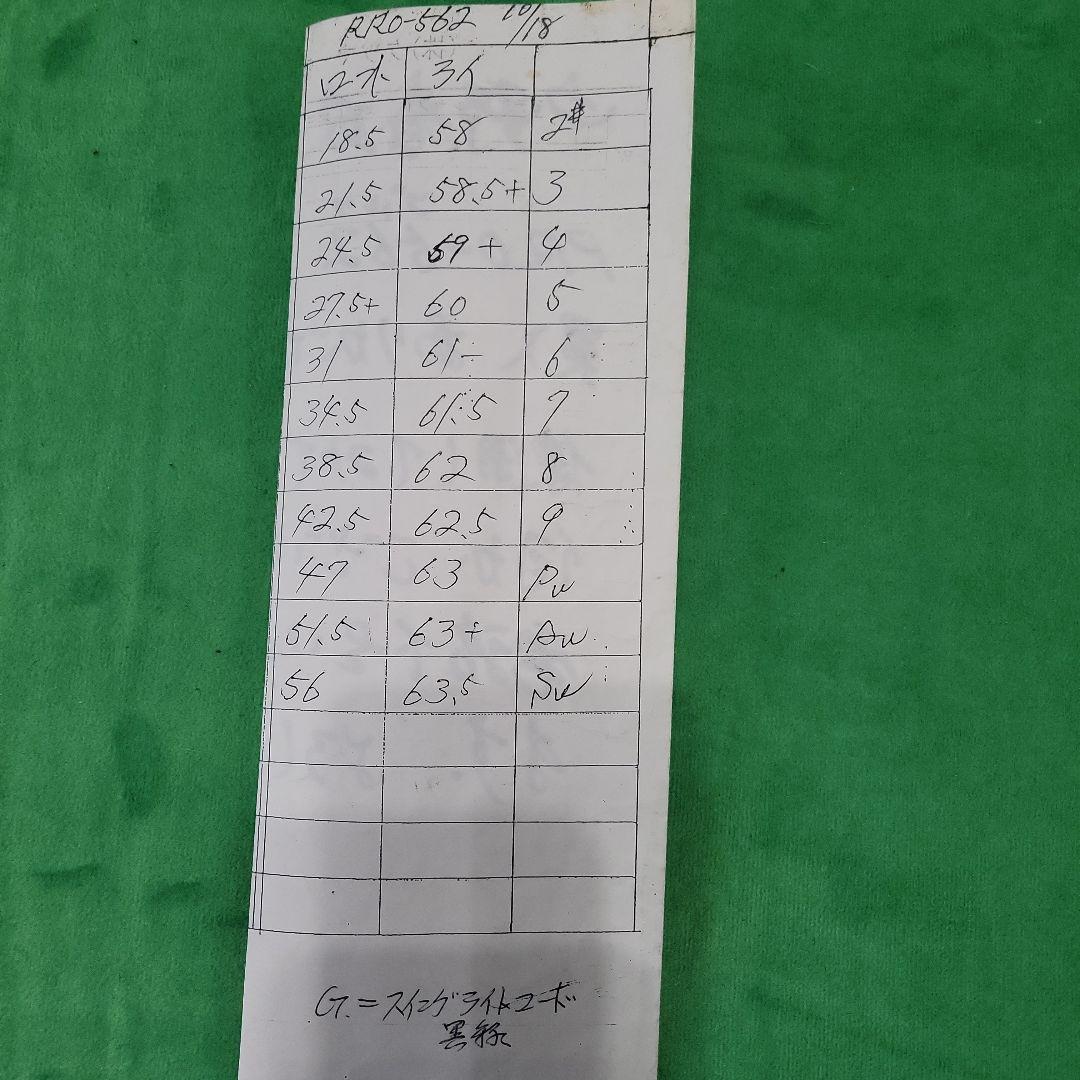 RRO-562 10/18
ロフト ライ
18.5 58 2#
21.5 58.5+ 3
24.5 59+ 4
27.5+ 60 5
31 61- 6
34.5 61.5 7
38.5 62 8
42.5 62.5 9
47 63 Pw
51.5 63+ Aw
56 63.5 Sw
G.=スイングライトコード
黒緑